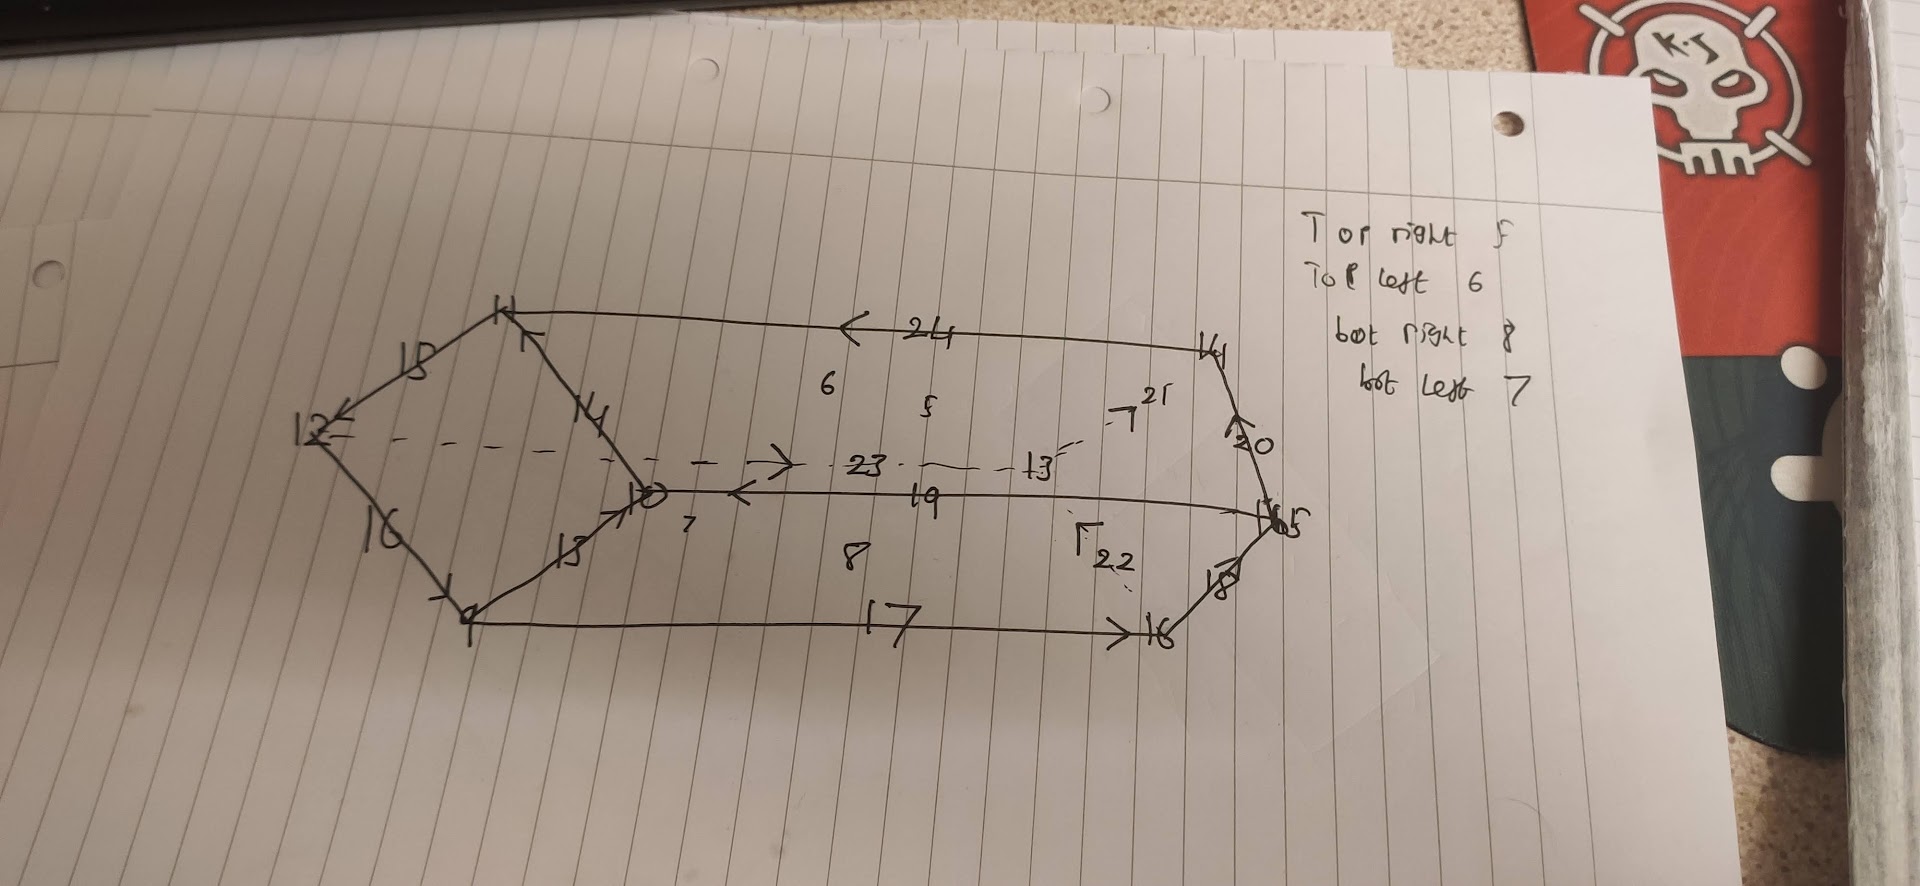 K.J
Top right 5
Top left 6
bot right 8
bot left 7
11
24
14
15
6
5
21
14
12
23
13
20
10
19
15
7
16
13
8
22
18
9
17
16